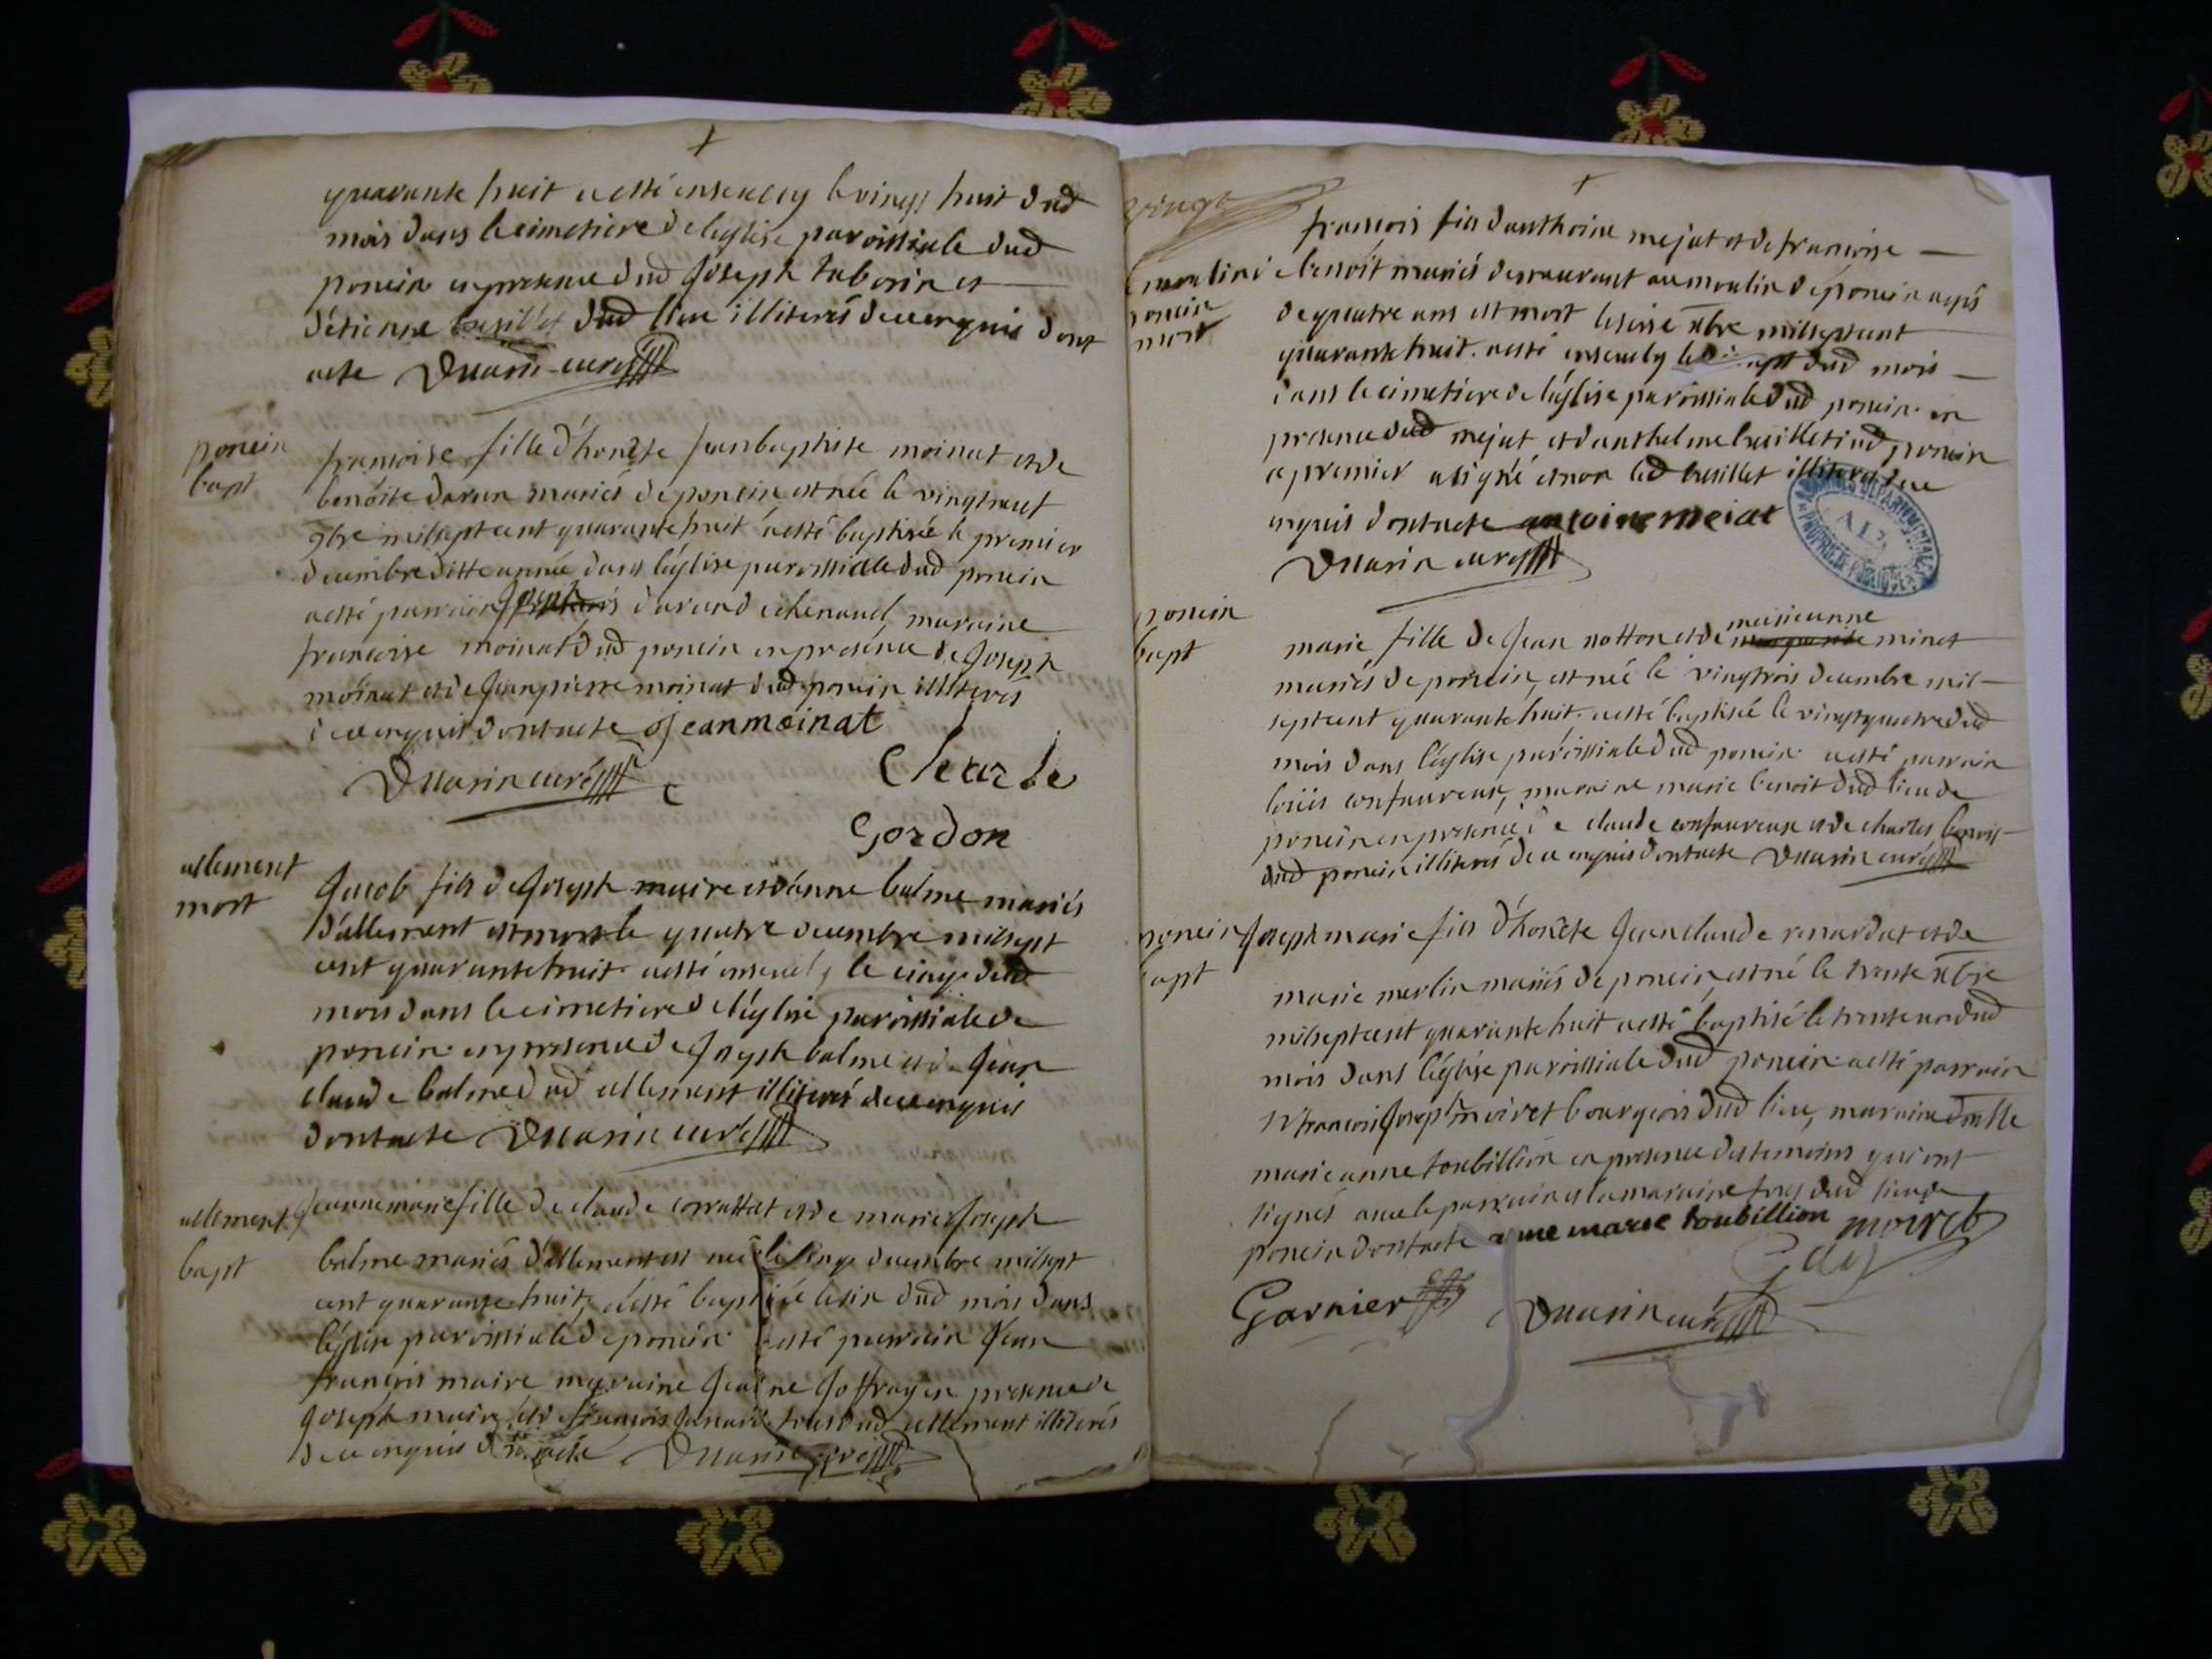 quarante huit a esté ensevely le vingt huit dud
mois dans le cimetiere de leglise paroissiale dud
poncin en presence dud Joseph taborin et
détienne bresillet dud lieu illiterés de ce enquis dont
acte Duarin curé
poncin
bapt
francoise fille d'honeste Jean baptiste moinat et de
benoite darun mariés de poncin est née le vingtneuf
9bre milsept cent quarante huit a esté baptisée le premier
decembre ditte année dans l'églize paroissialle dud poncin
a esté parrain Joseph davand echenaud, maraine
francoise moinat dud poncin en presence de Joseph
moinat et de Jean pierre moinat dud poncin illiterés
de ce enquis dont acte Jean moinat
Duarin curé
Charle
Gordon
allement
mort
Jacob fils de Joseph maire et d'anne balme mariés
d'allement est mort le quatre decembre milsept
cent quarante huit a esté ensevely le cinq dud
mois dans le cimetiere de l'églize paroissiale de
poncin en presence de Joseph balme et de Jean
claude balme dud allement illiterés de ce enquis
dont acte Duarin curé
allement
bapt
Jeanne marie fille de claude corrattat et de marie Joseph
balme mariés d'allement est née le cinq decembre milsept
cent quarante huit, a esté baptisée le six dud mois dans
l'églize paroissiale de poncin a esté parrain Jean
francois maire maraine Jeanne Joffray en presence de
Joseph maire et de francois Janard tous dud allement illiterés
de ce enquis dont acte Duarin curé
vingt
moulin de
poncin
mort
francois fils d'anthoine mejat et de francoise
benoit mariés demeurant au moulin de poncin agés
de quatre ans est mort le seize xbre milsept cent
quarante huit a esté ensevely le dix sept dud mois
dans le cimetiere de l'églize paroissiale dud poncin en
presence dud mejat et d'anthelme bresillet dud poncin
ce premier a signé et non led bresillet illiteré de ce
enquis dont acte antoine meiat
Duarin curé
poncin
bapt
marieanne
marie fille de Jean notton et de minet
mariés de poncin, est née le vingtrois decembre mil
sept cent quarante huit a esté baptisée le vingtquatre dud
mois dans l'églize paroissiale dud poncin a esté parrain
loüis confavreux, maraine marie benoit dud lieu de
poncin en presence de claude confavreux et de charles benoit
dud poncin illiterés de ce enquis dont acte Duarin curé
poncin
bapt
Joseph marie fils d'honeste Jean claude renardat et de
marie merlin mariés de poncin, est né le trente xbre
milsept cent quarante huit a esté baptisé le trente un dud
mois dans l'églize paroissiale dud poncin a esté parrain
sr francois Joseph moiret bourgeois dud lieu, maraine dmlle
marie anne toubillion en presence des temoins qui ont
signés avec le parrain et la maraine tous dud lieu de
poncin dont acte anne marie toubillion moiret
Garnier Duarin curé